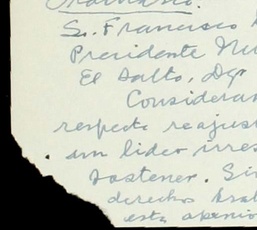 Sr. Francisco
Presidente Mu
El Salto, Dgo
Consideran
respecto reajus
un lider irres
sostener. Si
derechos
esta